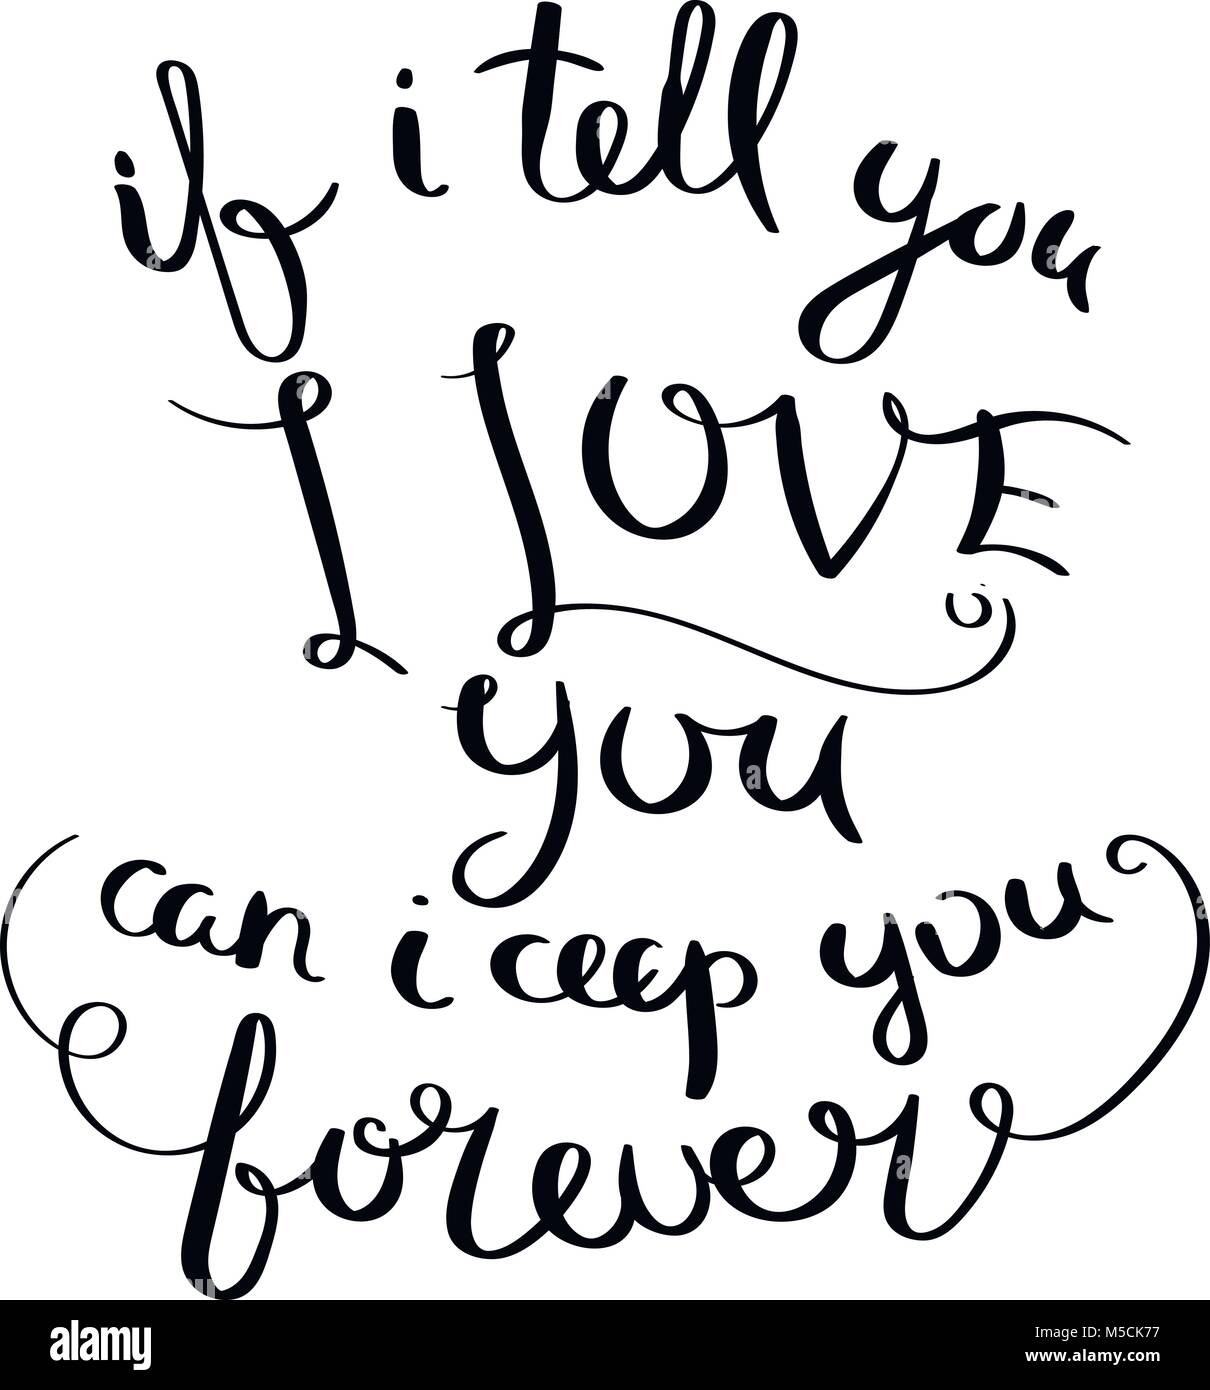 if i tell you
I LOVE
you
can i ceep you
forever
alamy stock photo
a
alamy
M5CK77
www.alamy.com